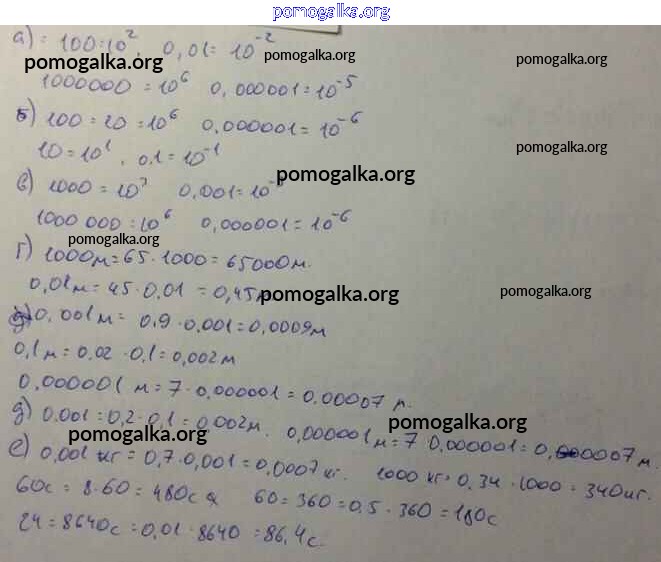 pomogalka.org
а) = 100 = 10², 0,01 = 10⁻²
pomogalka.org pomogalka.org pomogalka.org
1000000 = 10⁶ 0,000001 = 10⁻⁵
б) 100 = 10 = 10⁶ 0,000001 = 10⁻⁶
10 = 10¹, 0,1 = 10⁻¹
pomogalka.org
pomogalka.org
в) 1000 = 10³ 0,001 = 10
1000 000 = 10⁶ 0,000001 = 10⁻⁶
pomogalka.org
г) 1000м = 65 · 1000 = 65000м.
0,01м = 45 · 0,01 = 0,45м
pomogalka.org pomogalka.org
0,001м = 0.9 · 0.001 = 0,0009м
0,1м = 0.02 · 0,1 = 0,002м
0,000001 м = 7 · 0,000001 = 0.00007 м.
д) 0.001 = 0,2 · 0,1 = 0,002м. 0,000001м = 7 · 0,000001 = 0,000007 м.
pomogalka.org pomogalka.org
е) 0,001 кг = 0,7 · 0,001 = 0,0007 кг. 1000 кг = 0,34 · 1000 = 340кг.
60с = 8 · 60 = 480с 60 = 360 = 0,5 · 360 = 180с
24 = 8640с = 0,01 · 8640 = 86,4с.